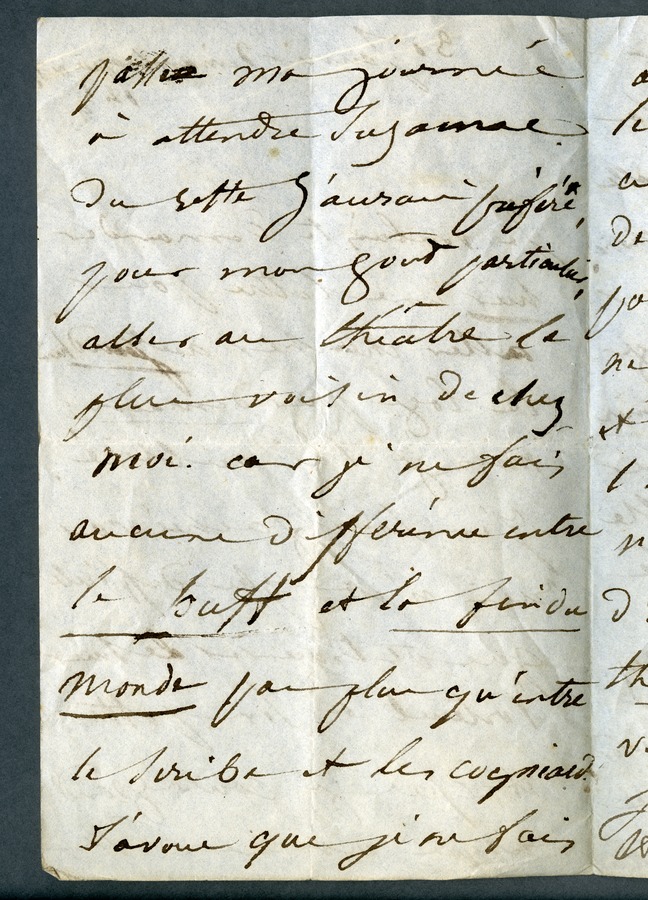 passer ma journée
à attendre Suzanne.
Du reste j'aurais préféré,
pour mon goût particulier,
aller au théâtre le
plus voisin de chez
moi. car je ne fais
aucune différence entre
le buff et la fin du
monde pas plus qu'entre
le Scribe et les cogniard
J'avoue que je ne fais